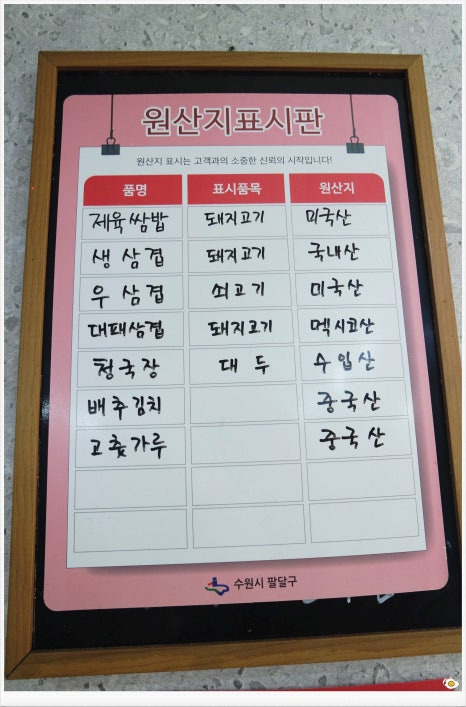 원산지표시판
원산지 표시는 고객과의 소중한 신뢰의 시작입니다!
품명 표시품목 원산지
제육쌈밥 돼지고기 미국산
생삼겹 돼지고기 국내산
우삼겹 쇠고기 미국산
대패삼겹 돼지고기 멕시코산
청국장 대두 수입산
배추김치 중국산
고춧가루 중국산
수원시 팔달구